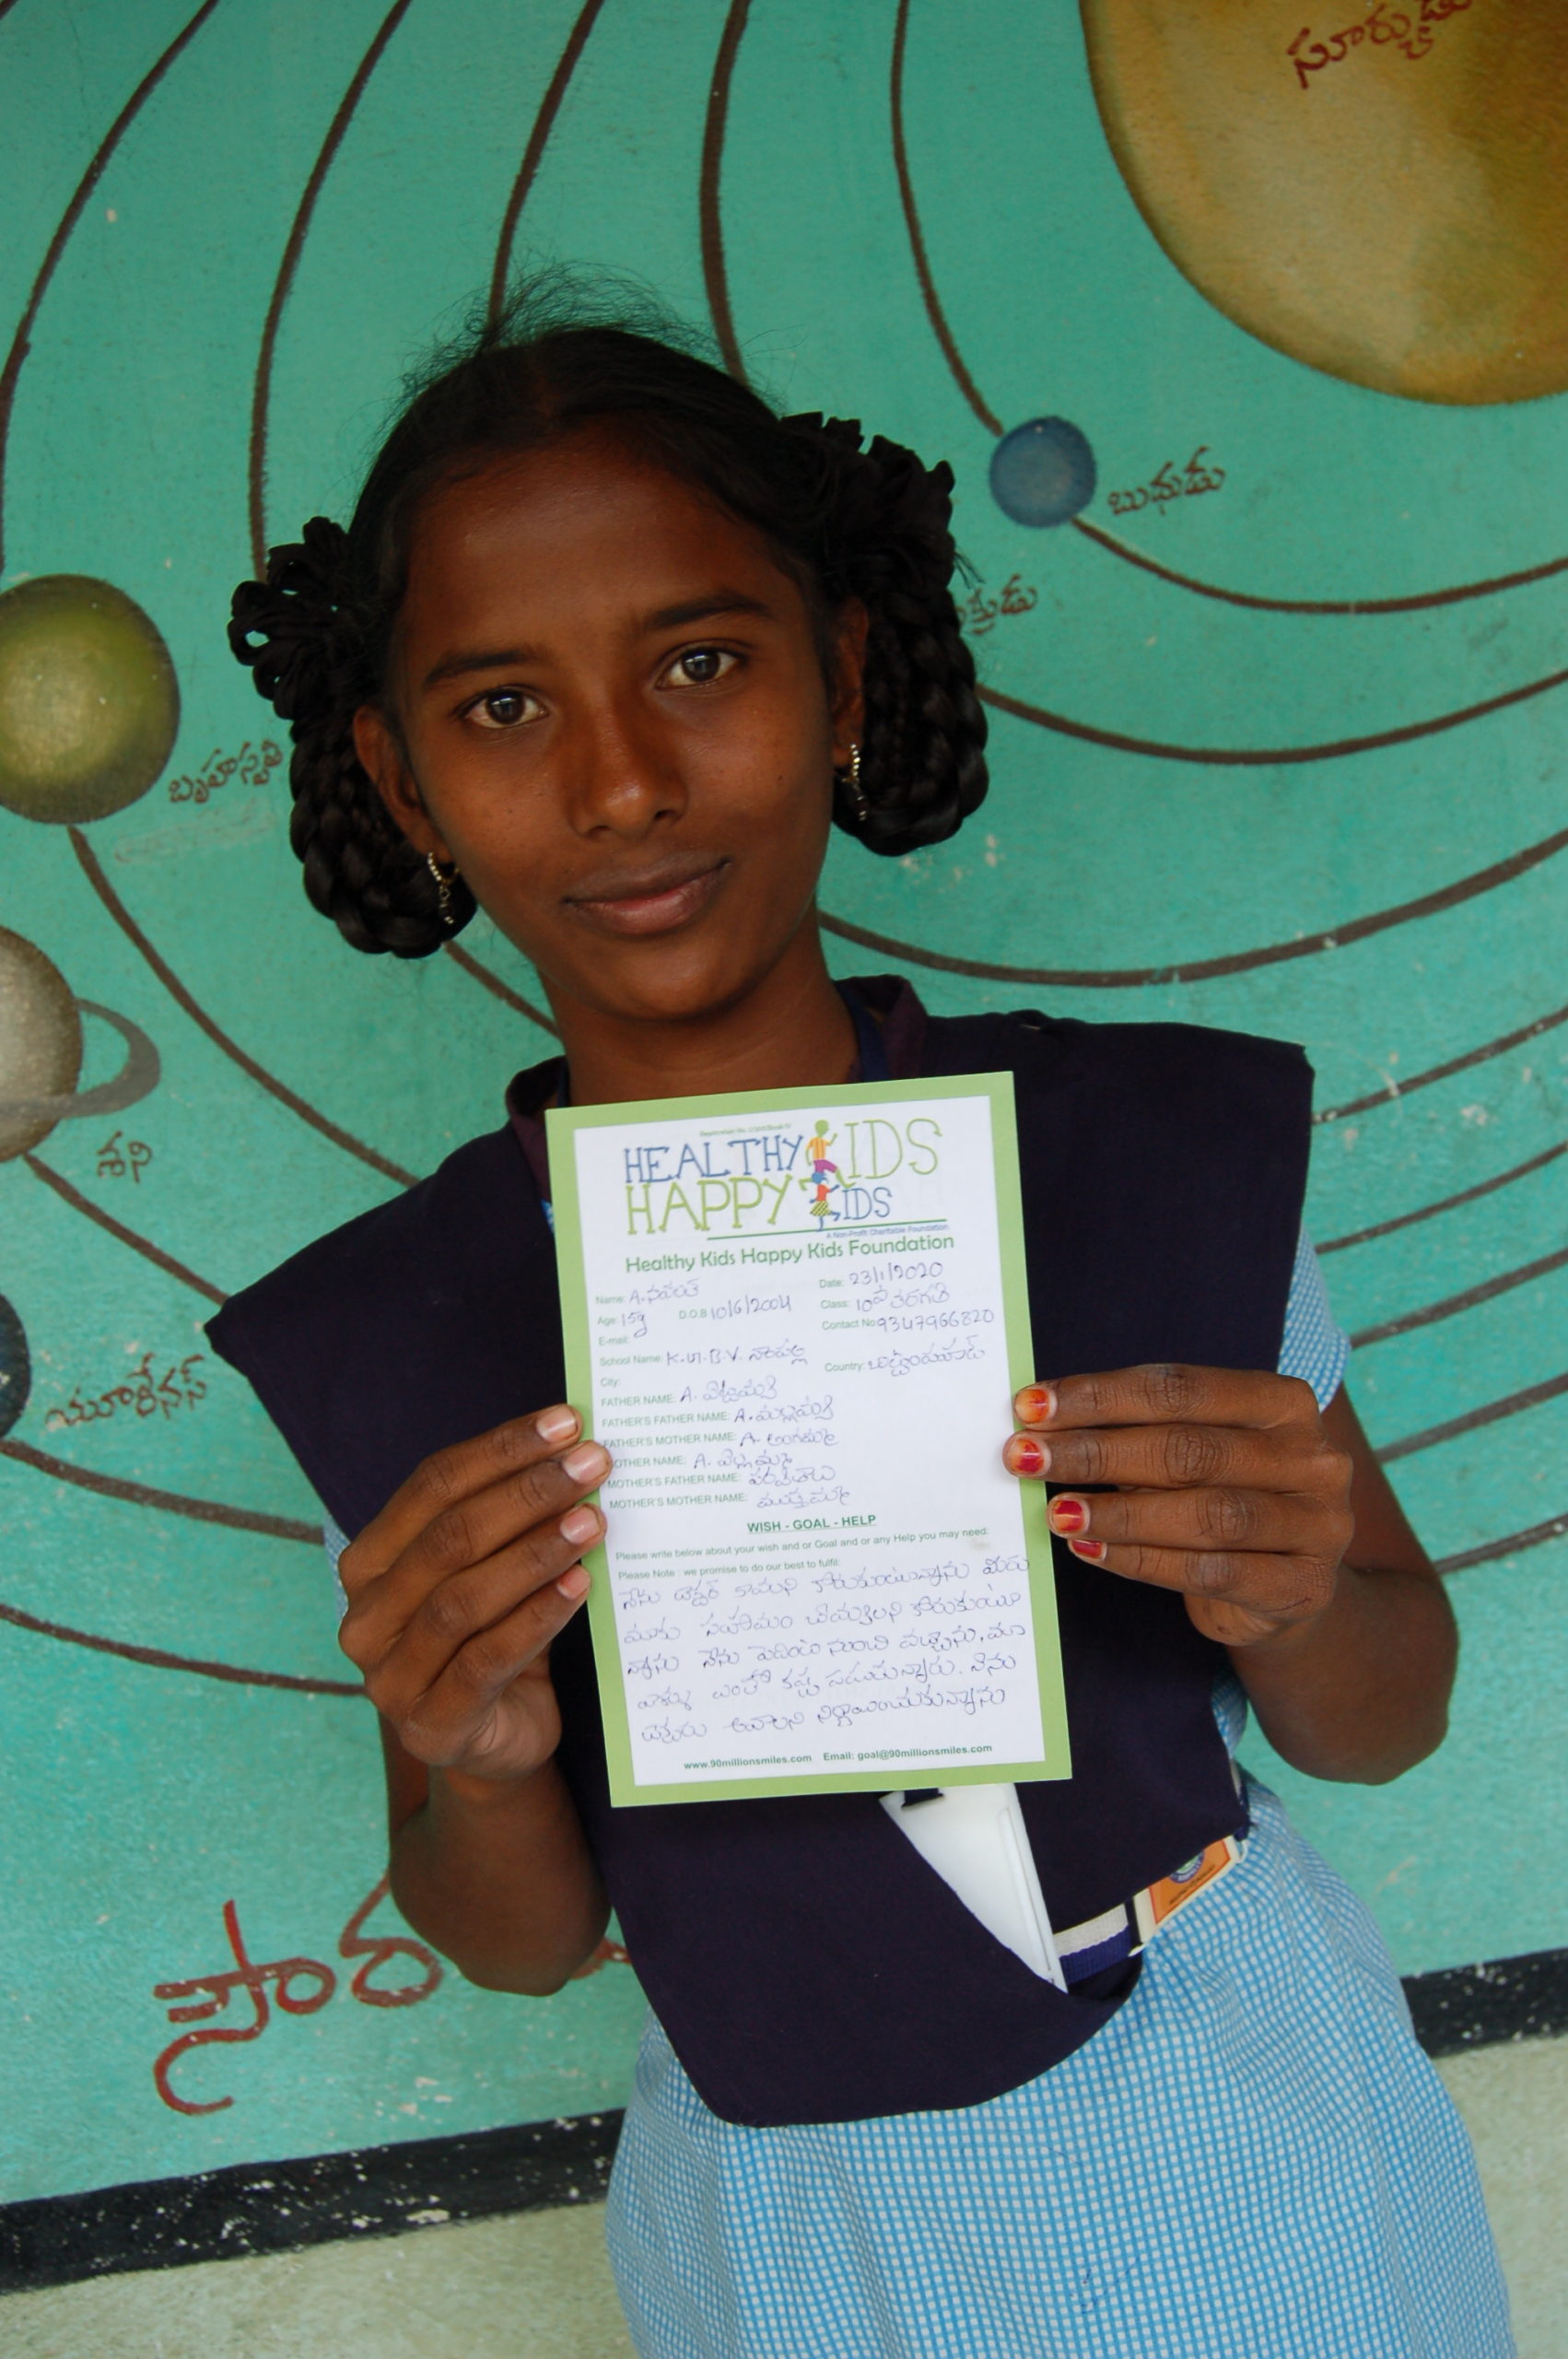 సూర్యుడు
బుధుడు
క్రుడు
బృహస్పతి
శని
యూరేనస్
సౌర
HEALTHY KIDS
HAPPY KIDS
A Non-Profit Charitable Foundation
Healthy Kids Happy Kids Foundation
Name: A. Date: 23/1/2020
Age: 15y D.O.B 10/6/2004 Class: 10వ తరగతి
E-mail: Contact No 9347966820
School Name: K.G.B.V. Country:
City:
FATHER NAME: A.
FATHER'S FATHER NAME: A. మల్లయ్య
FATHER'S MOTHER NAME: A. అంగమ్మ
MOTHER NAME: A. ఎల్లమ్మ
MOTHER'S FATHER NAME:
MOTHER'S MOTHER NAME: ముత్తమ్మ
WISH - GOAL - HELP
Please write below about your wish and or Goal and or any Help you may need:
Please Note : we promise to do our best to fulfil:
నేను డాక్టర్ కావాలని కోరుకుంటున్నాను మీరు
మాకు సహాయం చేయ్యాలని కోరుకుంటూ
న్నాను నేను పేదింటి నుంచి వచ్చాను. మా
వాళ్ళు ఎంతో కష్ట పడుతున్నారు. నేను
డాక్టరు అవాలని నిర్ణాయించుకున్నాను
www.90millionsmiles.com Email: goal@90millionsmiles.com